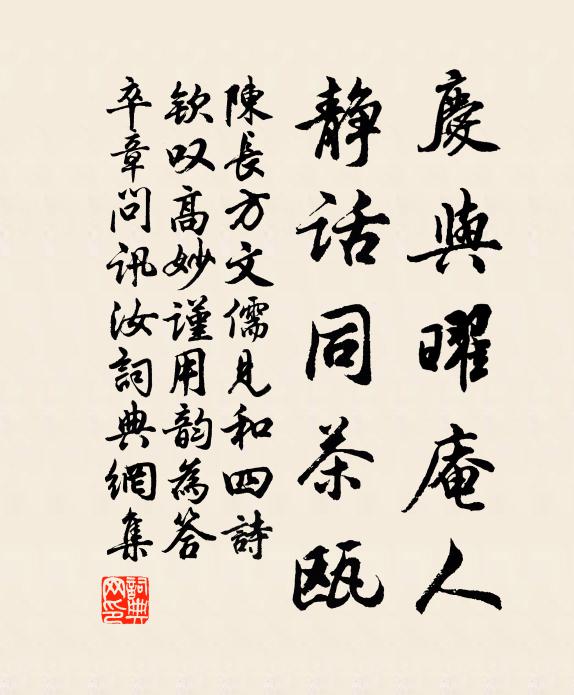 慶與曜庵人
靜話同茶甌
陳長方文儒見和四詩
欽叹高妙謹用韵為答
卒章問訊汝詞典網集
詞典网印